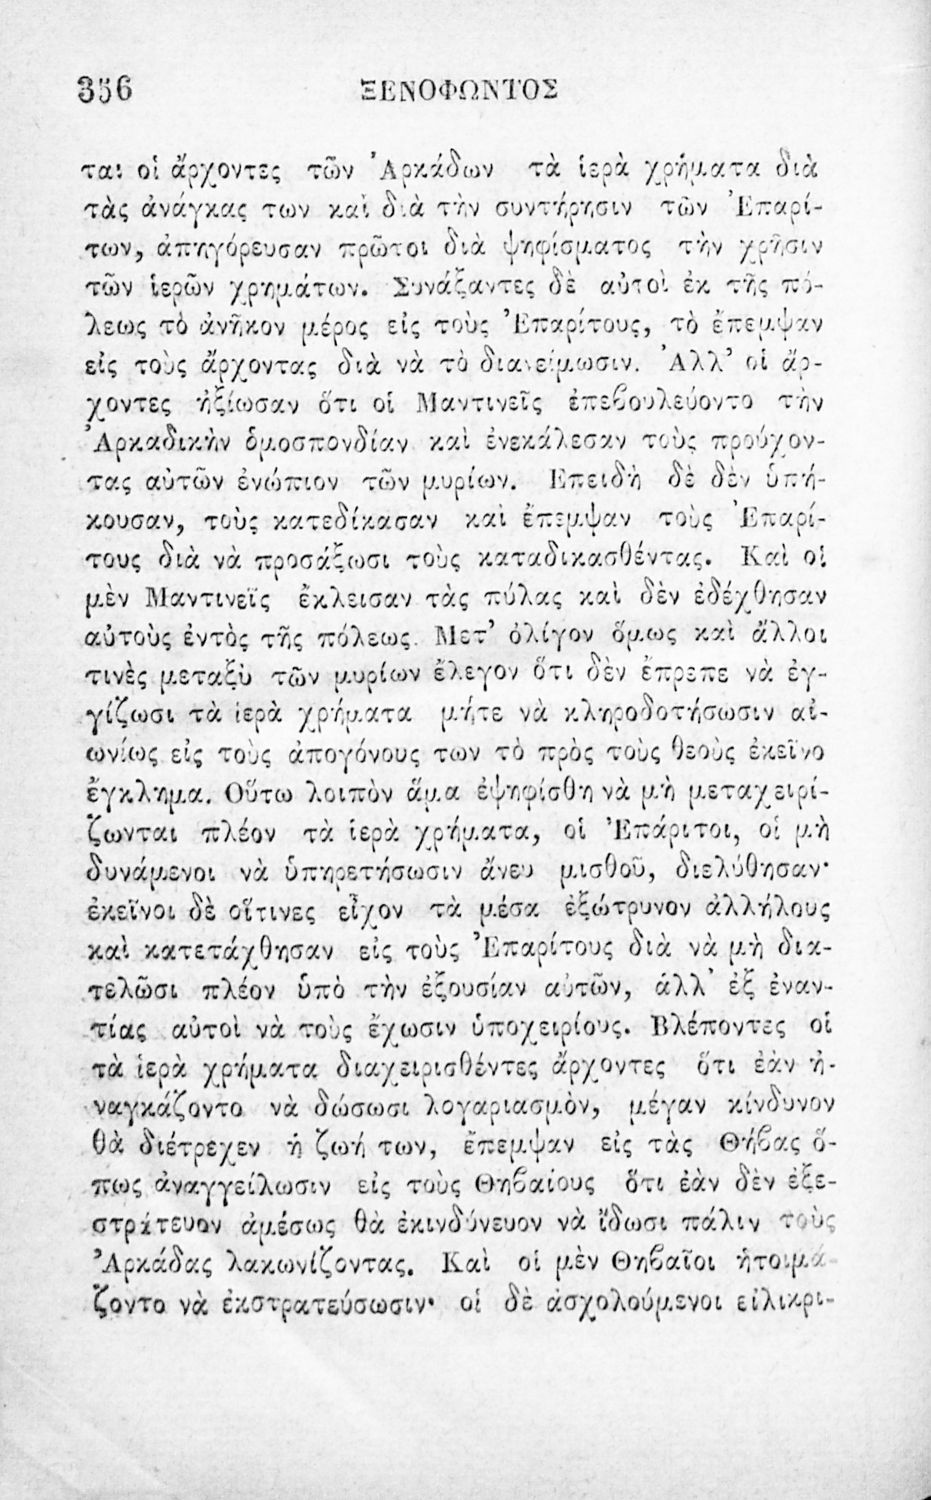 356 ΞΕΝΟΦΩΝΤΟΣ
ται οἱ ἄρχοντες τῶν Ἀρκάδων τὰ ἱερὰ χρήματα διὰ
τὰς ἀνάγκας των καὶ διὰ τὴν συντήρησιν τῶν Ἐπαρί-
των, ἀπηγόρευσαν πρῶτοι διὰ ψηφίσματος τὴν χρῆσιν
τῶν ἱερῶν χρημάτων. Συνάξαντες δὲ αὐτοὶ ἐκ τῆς πό-
λεως τὸ ἀνῆκον μέρος εἰς τοὺς Ἐπαρίτους, τὸ ἔπεμψαν
εἰς τοὺς ἄρχοντας διὰ νὰ τὸ διανείμωσιν. Ἀλλ’ οἱ ἄρ-
χοντες ἠξίωσαν ὅτι οἱ Μαντινεῖς ἐπεβουλεύοντο τὴν
Ἀρκαδικὴν ὁμοσπονδίαν καὶ ἐνεκάλεσαν τοὺς προύχον-
τας αὐτῶν ἐνώπιον τῶν μυρίων. Ἐπειδὴ δὲ δὲν ὑπή-
κουσαν, τοὺς κατεδίκασαν καὶ ἔπεμψαν τοὺς Ἐπαρί-
τους διὰ νὰ προσάξωσι τοὺς καταδικασθέντας. Καὶ οἱ
μὲν Μαντινεῖς ἔκλεισαν τὰς πύλας καὶ δὲν ἐδέχθησαν
αὐτοὺς ἐντὸς τῆς πόλεως. Μετ’ ὀλίγον ὅμως καὶ ἄλλοι
τινὲς μεταξὺ τῶν μυρίων ἔλεγον ὅτι δὲν ἔπρεπε νὰ ἐγ-
γίζωσι τὰ ἱερὰ χρήματα μήτε νὰ κληροδοτήσωσιν αἰ-
ωνίως εἰς τοὺς ἀπογόνους των τὸ πρὸς τοὺς θεοὺς ἐκεῖνο
ἔγκλημα. Οὕτω λοιπὸν ἅμα ἐψηφίσθη νὰ μὴ μεταχειρί-
ζωνται πλέον τὰ ἱερὰ χρήματα, οἱ Ἐπάριτοι, οἱ μὴ
δυνάμενοι νὰ ὑπηρετήσωσιν ἄνευ μισθοῦ, διελύθησαν·
ἐκεῖνοι δὲ οἵτινες εἶχον τὰ μέσα ἐξώτρυνον ἀλλήλους
καὶ κατετάχθησαν εἰς τοὺς Ἐπαρίτους διὰ νὰ μὴ δια-
τελῶσι πλέον ὑπὸ τὴν ἐξουσίαν αὐτῶν, ἀλλ’ ἐξ ἐναν-
τίας αὐτοὶ νὰ τοὺς ἔχωσιν ὑποχειρίους. Βλέποντες οἱ
τὰ ἱερὰ χρήματα διαχειρισθέντες ἄρχοντες ὅτι ἐὰν ἠ-
ναγκάζοντο νὰ δώσωσι λογαριασμὸν, μέγαν κίνδυνον
θὰ διέτρεχεν ἡ ζωή των, ἔπεμψαν εἰς τὰς Θήβας ὅ-
πως ἀναγγείλωσιν εἰς τοὺς Θηβαίους ὅτι ἐὰν δὲν ἐξε-
στράτευον ἀμέσως θὰ ἐκινδύνευον νὰ ἴδωσι πάλιν τοὺς
Ἀρκάδας λακωνίζοντας. Καὶ οἱ μὲν Θηβαῖοι ἡτοιμά
ζοντο νὰ ἐκστρατεύσωσιν· οἱ δὲ ἀσχολούμενοι εἰλικρι-